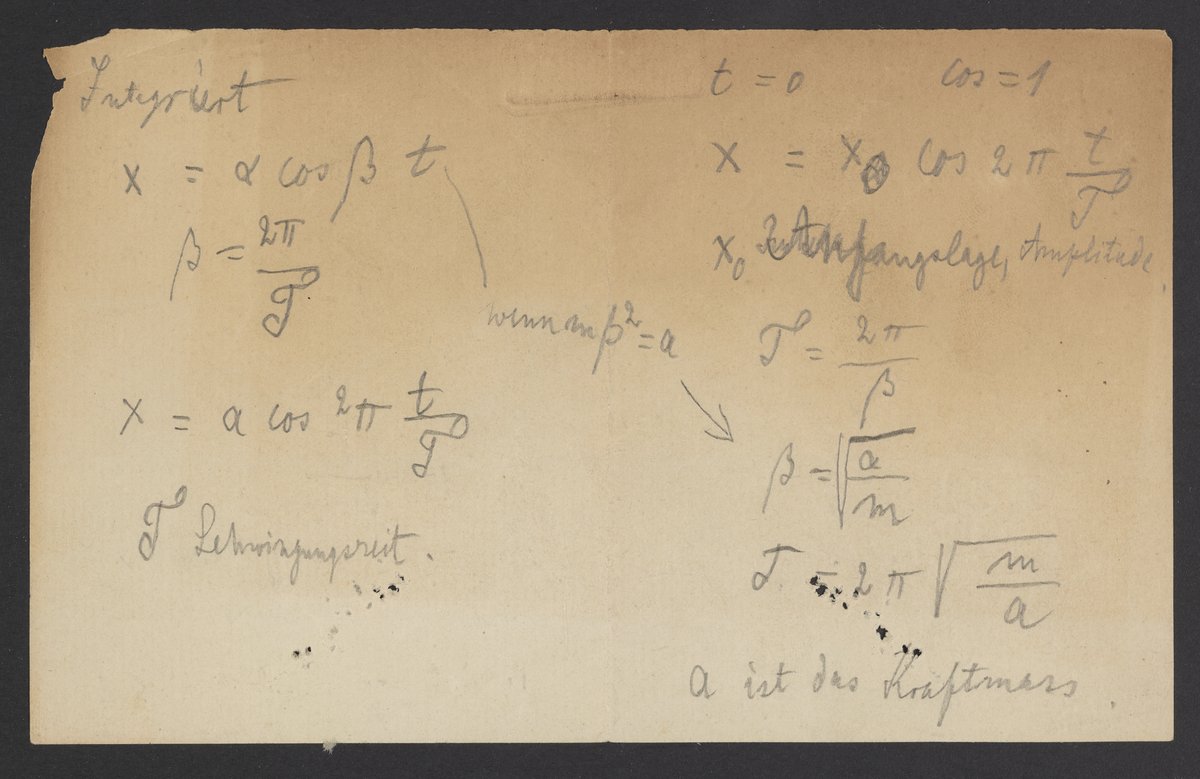 Integriert
x = α cos β t
β = 2π/T
wenn mβ² = a
x = a cos 2π t/T
T Schwingungszeit.
t = 0 cos = 1
x = x₀ cos 2π t/T
x₀ Anfangslage, Amplitude.
T = 2π/β
β = √(a/m)
T = 2π √(m/a)
a ist das Kraftmass.